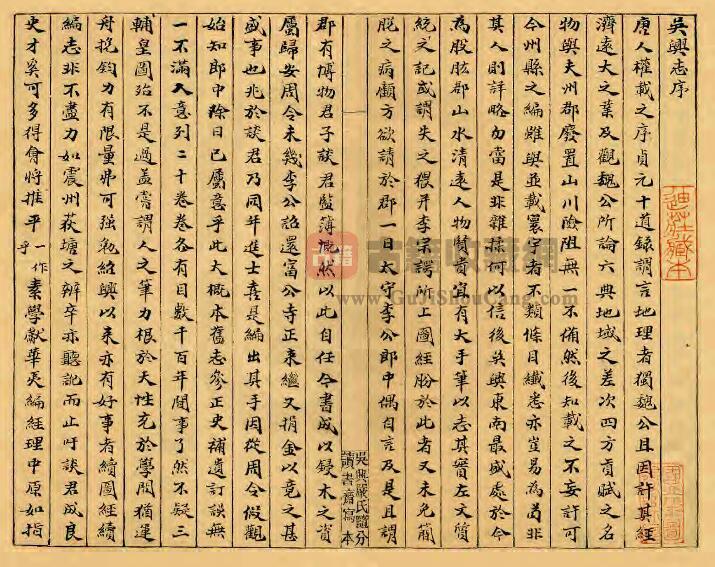 吳興志序
唐人權載之序貞元十道錄謂言地理者獨魏公且因許其經
濟遠大之業及觀魏公所論六典地域之差次四方貢賦之名
物與夫州郡廢置山川險阻無一不備然後知載之不妄許可
今州縣之編雖與並載寰宇者不類條目纖悉亦豈易為苟非
其人則詳略勿當是非雜揉何以信後吳興東南最盛處於今
為股肱郡山水清遠人物賢貴宜有大手筆以志其實左文質
統之記或謂失之猥并李宗諤所上圖經盼於此者又未免簡
脫之病顧方欲請於郡一日太守李公郎中偶自言及是且謂
郡有博物君子談君監簿慨然以此自任今書成以鋟木之資
屬歸安周令未幾李公詔還富公寺正來繼又捐金以竟之甚
盛事也兆於談君乃同年進士喜是編出其手因從周令假觀
始知郎中除日已屬意乎此大概本舊志參正史補遺訂誤無
一不滿人意列二十卷卷各有目數千百年間事了然不疑三
輔皇圖殆不是過蓋嘗謂人之筆力根於天性充於學問猶運
舟挽鈞力有限量弗可强勉紹興以來亦有好事者續圖經續
編志非不盡力如震州荻塘之辨卒亦聽訛而止吁談君成良
史才奚可多得會將推平一作乎素學獻華夷編經理中原如指
吳興嚴氏隨分讀書齋寫本
古籍收藏網
www.GuJiShouCang.com